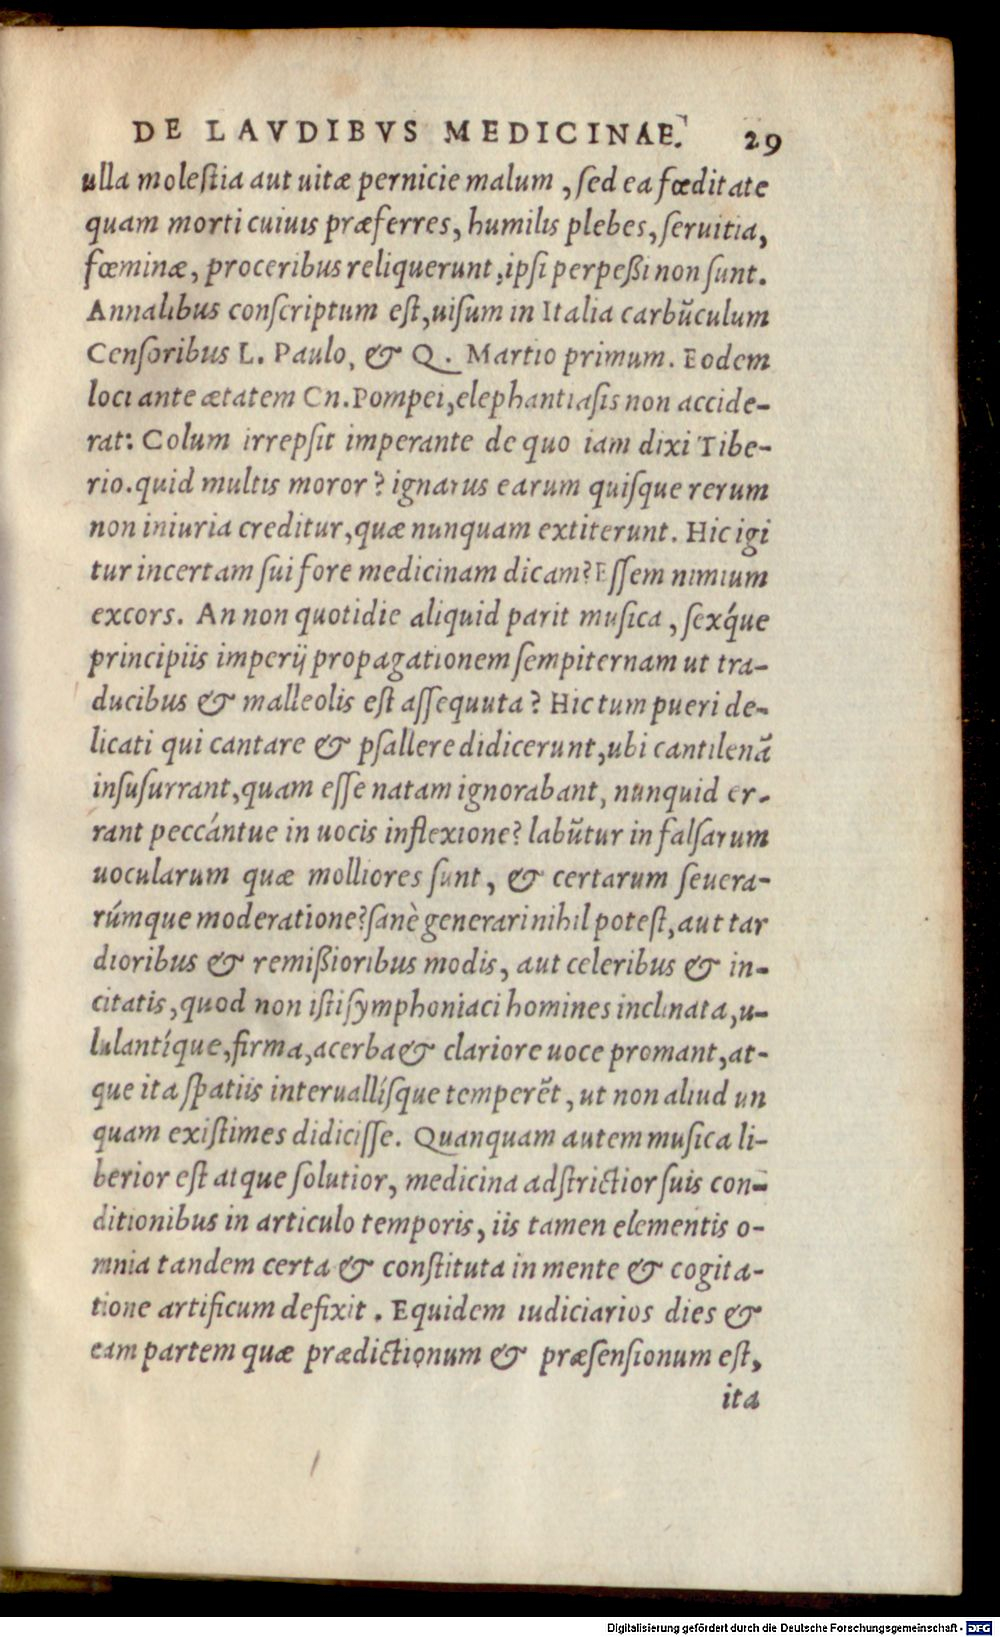 DE LAVDIBVS MEDICINAE. 29
ulla molestia aut uitæ pernicie malum, sed ea fœditate
quam morti cuiuis præferres, humilis plebes, seruitia,
fœminæ, proceribus reliquerunt, ipsi perpeßi non sunt.
Annalibus conscriptum est, uisum in Italia carbũculum
Censoribus L. Paulo, & Q. Martio primum. Eodem
loci ante ætatem Cn. Pompei, elephantiasis non accide-
rat: Colum irrepsit imperante de quo iam dixi Tibe-
rio. quid multis moror? ignarus earum quisque rerum
non iniuria creditur, quæ nunquam extiterunt. Hic igi
tur incertam sui fore medicinam dicam? Essem nimium
excors. An non quotidie aliquid parit musica, sexq́ue
principiis imperij propagationem sempiternam ut tra-
ducibus & malleolis est assequuta? Hic tum pueri de-
licati qui cantare & psallere didicerunt, ubi cantilenã
insusurrant, quam esse natam ignorabant, nunquid er-
rant peccántue in uocis inflexione? labũtur in falsarum
uocularum quæ molliores sunt, & certarum seuera-
rúmque moderatione? sanè generari nihil potest, aut tar
dioribus & remißioribus modis, aut celeribus & in-
citatis, quod non isti symphoniaci homines inclinata, u-
lulantíque, firma, acerba & clariore uoce promant, at-
que ita spatiis interuallísque temperẽt, ut non aliud un
quam existimes didicisse. Quanquam autem musica li-
berior est atque solutior, medicina adstrictior suis con-
ditionibus in articulo temporis, iis tamen elementis o-
mnia tandem certa & constituta in mente & cogita-
tione artificum defixit. Equidem iudiciarios dies &
eam partem quæ prædictionum & præsensionum est,
ita
Digitalisierung gefördert durch die Deutsche Forschungsgemeinschaft - DFG